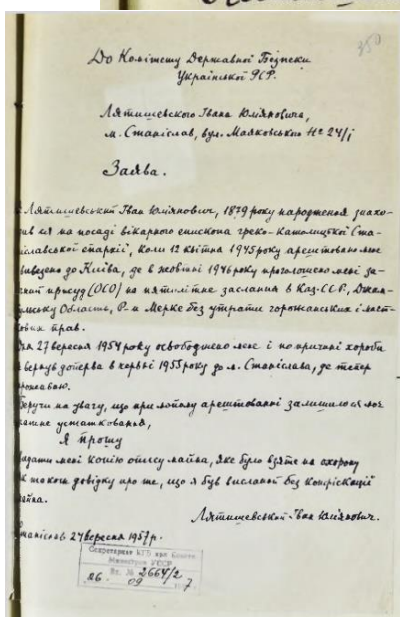 350
До Комітету Державної Безпеки
Української РСР.
Лятишевского Івана Юліяновича,
м. Станіслав, вул. Маяковського № 24/1
Заява.
Лятишевський Іван Юліянович, 1879 року народження знахо-
див ся на посаді вікарного епископа греко-католицької Ста-
іславської епархії, коли 12 квітня 1945 року арештовано мене
вивезено до Київа, де в жовтні 1946 року проголошено мені за-
присуд (ОСО) на пятилітне заслання в Каз. ССР, Джам-
ульську Область, Р-н Мерке без утрати горожанських і маєт-
кових прав.
27 вересня 1954 року освободжено мене і по причині хороби
вернув доперва в червні 1955 року до м. Станіслава, де тепер
проживаю.
Беручи на увагу, що при моїому арештованні залишилося моє
устатковання,
Я прошу
видати мені копію опису майна, яке було взяте на охорону
також довідку про те, що я був висланий без конфіскації
майна.
Лятишевський Іван Юліянович.
Станіслав 24 вересня 1957 р.
Секретариат КГБ при Совете
Министров УССР
Вх. № 2664/2
26. 09 7